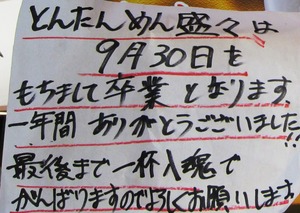 とんたんめん盛々は
9月30日を
もちまして卒業となります
一年間ありがとうございました!!
最後まで一杯入魂で
がんばりますのでよろしくお願いします